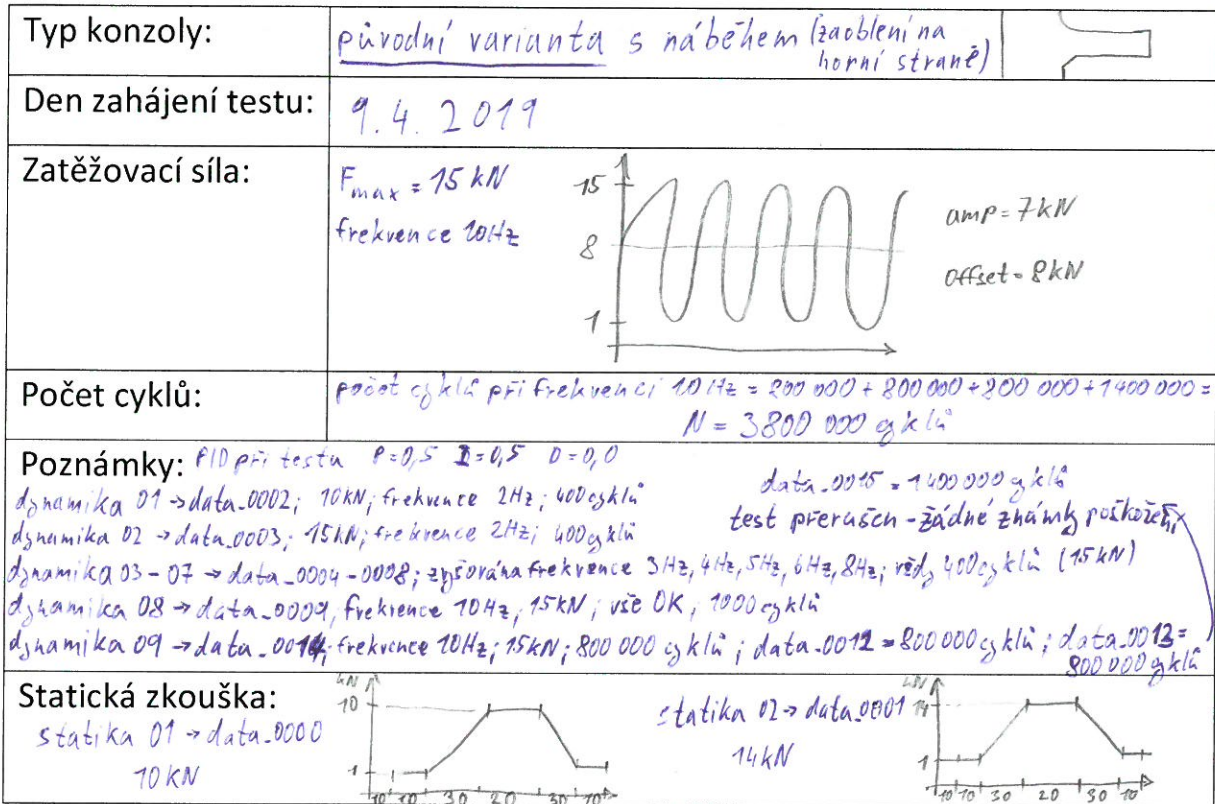 Typ konzoly: původní varianta s náběhem (zaoblení na
horní straně)
Den zahájení testu: 9.4.2019
Zatěžovací síla:
Fmax = 15 kN
frekvence 10Hz
15
8
1
amp = 7kN
offset = 8kN
Počet cyklů: počet cyklů při frekvenci 10 Hz = 800 000 + 800 000 + 800 000 + 1400 000 =
N = 3800 000 cyklů
Poznámky: PID při testu P=0,5 I=0,5 D=0,0
dynamika 01 → data_0002; 10kN; frekvence 2Hz; 400cyklů
data_0015 = 1400000 cyklů
dynamika 02 → data_0003; 15kN; frekvence 2Hz; 400cyklů
test přerušen - žádné známky poškození
dynamika 03-07 → data_0004-0008; zvyšována frekvence 3Hz, 4Hz, 5Hz, 6Hz, 8Hz; vždy 400cyklů (15kN)
dynamika 08 → data_0009, frekvence 10Hz, 15kN; vše OK, 1000cyklů
dynamika 09 → data_0011; frekvence 10Hz; 15kN; 800 000 cyklů; data_0012 = 800000 cyklů; data_0013=
800000 cyklů
Statická zkouška:
statika 01 → data_0000
10 kN
kN
10
1
10 10 30 20 30 10
statika 02 → data_0001
14kN
kN
14
1
10 10 30 20 30 10